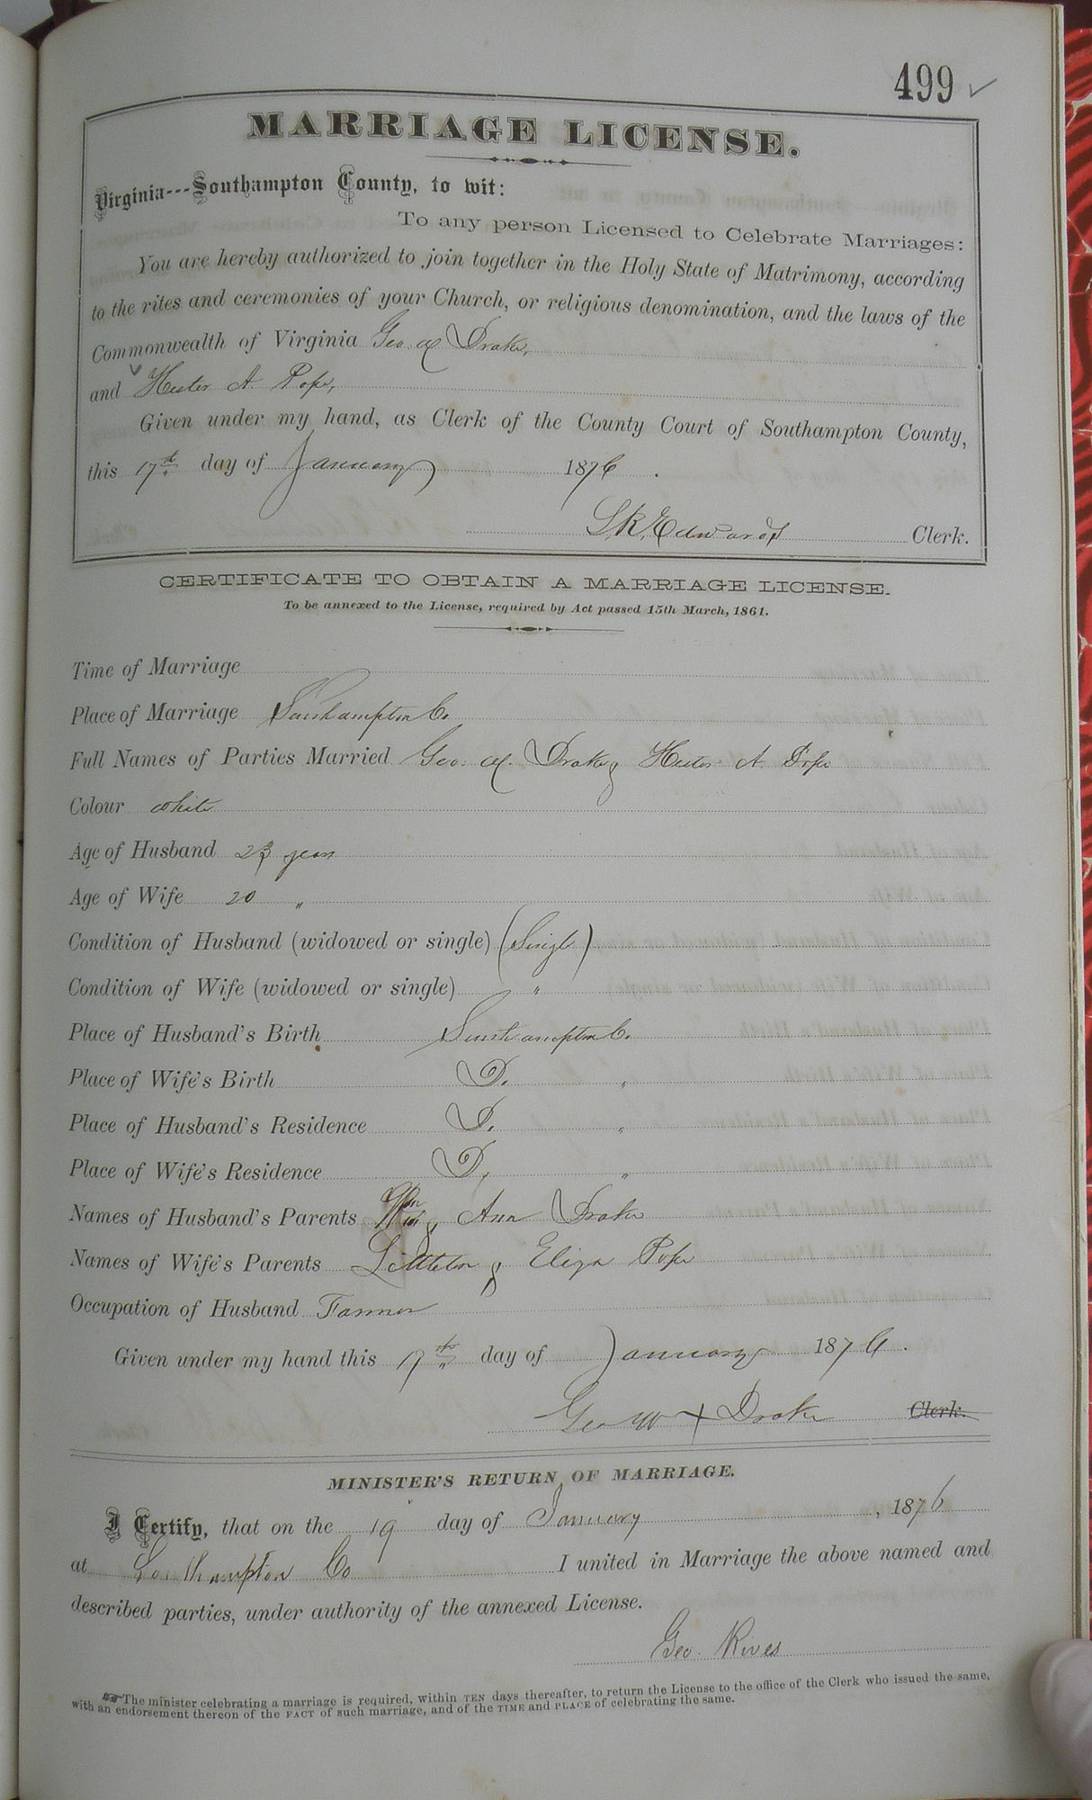 499 ✓
MARRIAGE LICENSE.
Virginia---Southampton County, to wit:
To any person Licensed to Celebrate Marriages:
You are hereby authorized to join together in the Holy State of Matrimony, according
to the rites and ceremonies of your Church, or religious denomination, and the laws of the
Commonwealth of Virginia Geo. W Drake,
and Hester A. Pope,
Given under my hand, as Clerk of the County Court of Southampton County,
this 17th day of January 1876.
L.R. Edwards Clerk.
CERTIFICATE TO OBTAIN A MARRIAGE LICENSE.
To be annexed to the License, required by Act passed 15th March, 1861.
Time of Marriage
Place of Marriage Southampton Co.
Full Names of Parties Married Geo. W. Drake & Hester A. Pope
Colour white
Age of Husband 23 years
Age of Wife 20 "
Condition of Husband (widowed or single) (Single)
Condition of Wife (widowed or single) "
Place of Husband's Birth Southampton Co.
Place of Wife's Birth D. "
Place of Husband's Residence D. "
Place of Wife's Residence D. "
Names of Husband's Parents & Ann Drake
Names of Wife's Parents Littleton & Eliza Pope
Occupation of Husband Farmer
Given under my hand this 17th day of January 1876.
Geo W + Drake Clerk.
MINISTER'S RETURN OF MARRIAGE.
I Certify, that on the 19 day of January, 1876
at Southampton Co I united in Marriage the above named and
described parties, under authority of the annexed License.
Geo. Rives
The minister celebrating a marriage is required, within TEN days thereafter, to return the License to the office of the Clerk who issued the same,
with an endorsement thereon of the FACT of such marriage, and of the TIME and PLACE of celebrating the same.